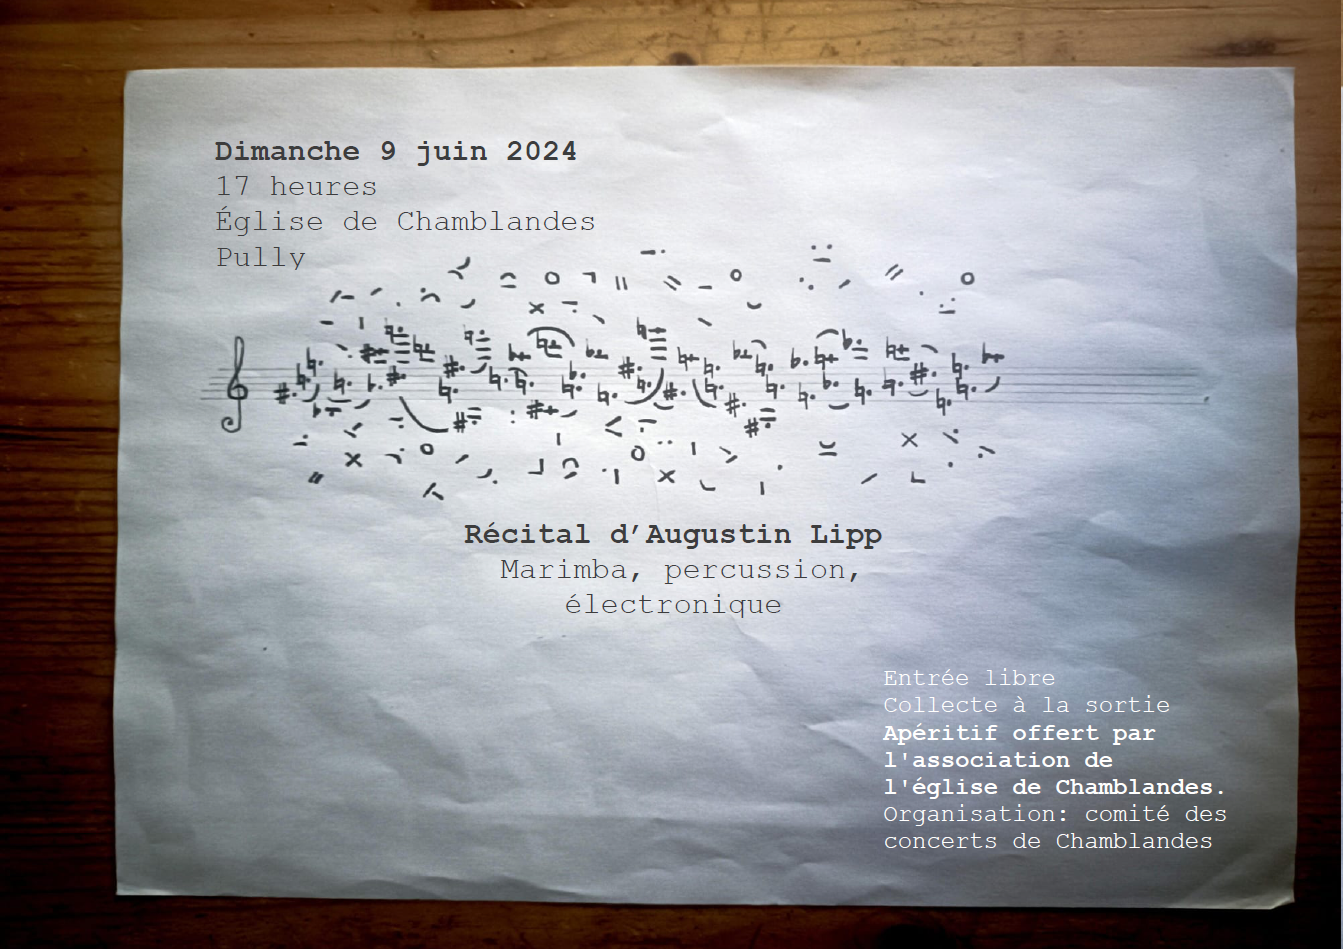 Dimanche 9 juin 2024
17 heures
Église de Chamblandes
Pully
Récital d’Augustin Lipp
Marimba, percussion,
électronique
Entrée libre
Collecte à la sortie
Apéritif offert par
l'association de
l'église de Chamblandes.
Organisation: comité des
concerts de Chamblandes